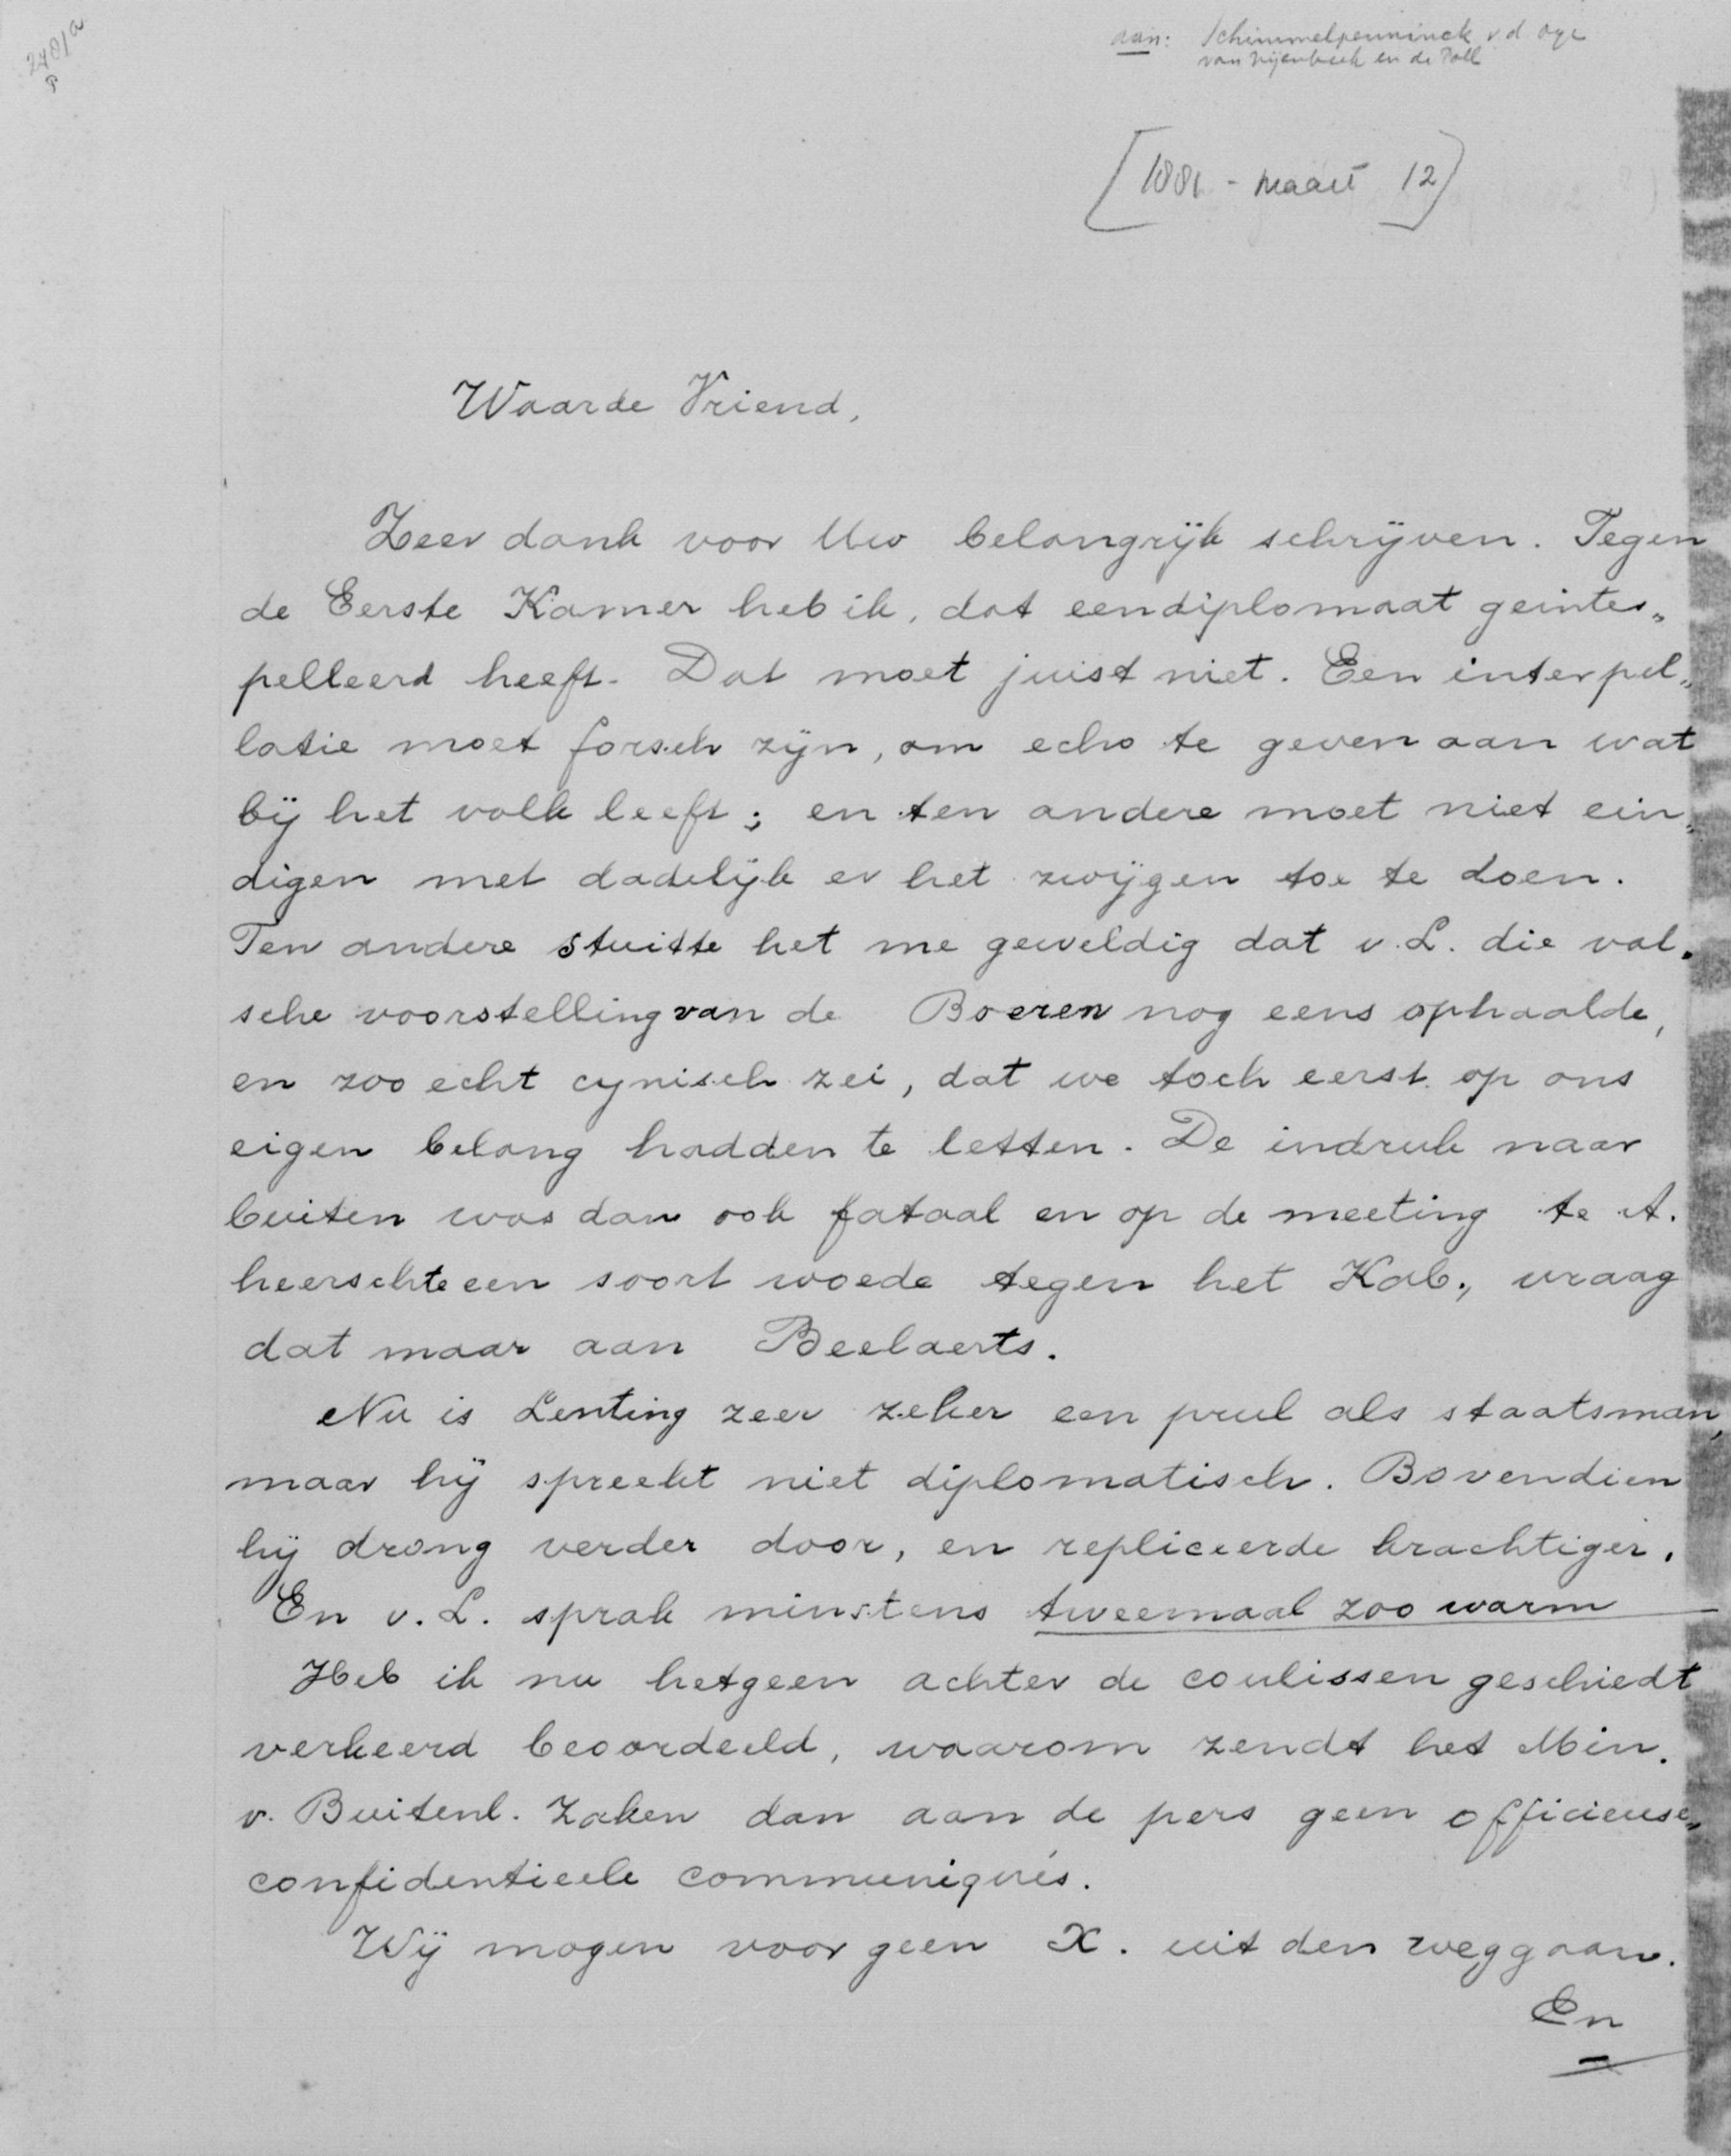 2401a
P
aan: Schimmelpenninck v.d. Oye
van Nijenbeek en de Poll
[1881 - Maart 12]
Waarde Vriend,
Zeer dank voor Uw belangrijk schrijven. Tegen
de Eerste Kamer heb ik, dat eendiplomaat geinter„
pelleerd heeft. Dat moet juist niet. Een interpel„
latie moet forsch zijn, om echo te geven aan wat
bij het volk leeft; en ten andere moet niet ein„
digen met dadelijk er het zwijgen toe te doen.
Ten andere stuitte het me geweldig dat v. L. die val„
sche voorstelling van de Boeren nog eens ophaalde,
en zoo echt cynisch zei, dat we toch eerst op ons
eigen belang hadden te letten. De indruk naar
buiten was dan ook fataal en op de meeting te A.
heerschte een soort woede tegen het Kab., vraag
dat maar aan Beelaerts.
Nu is Lenting zeer zeker een prul als staatsman,
maar hij spreekt niet diplomatisch. Bovendien
hij drong verder door, en repliceerde krachtiger.
En v. L. sprak minstens tweemaal zoo warm
Heb ik nu hetgeen achter de coulissen geschiedt
verkeerd beoordeeld, waarom zendt het Min.
v. Buitenl. Zaken dan aan de pers geen officieuse„
confidentieele communiqués.
Wij mogen voor geen X. uit den weg gaan.
En